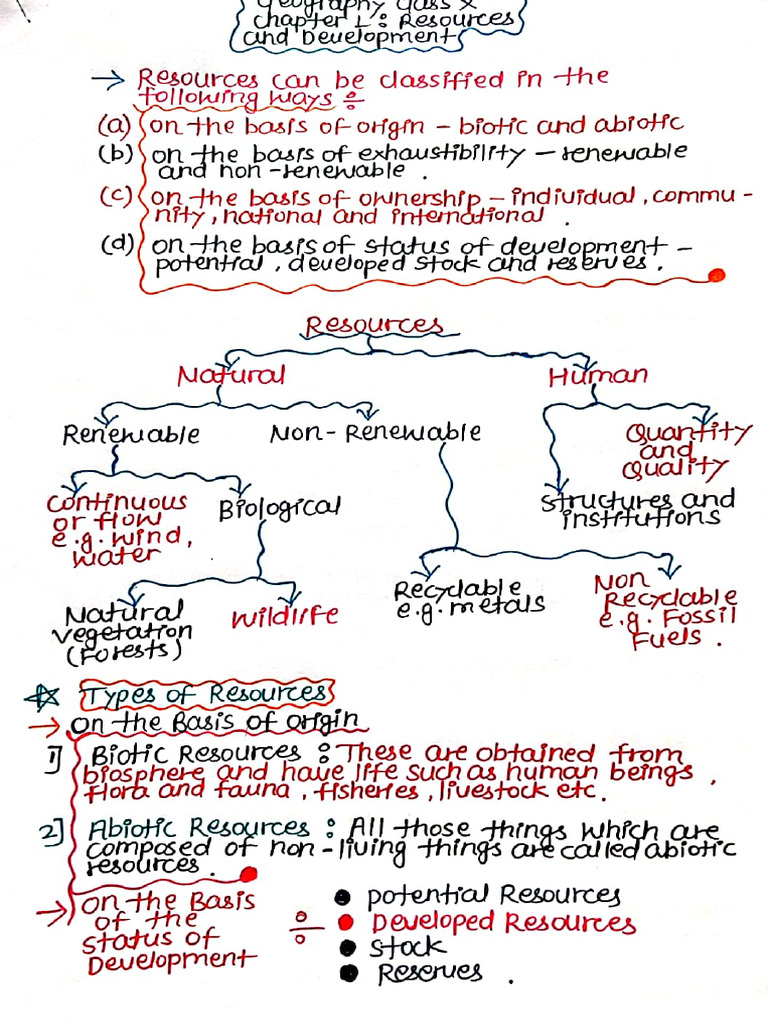 Geography class X
chapter 1 : Resources
and Development
→ Resources can be classified in the
following ways ÷
(a) on the basis of origin - biotic and abiotic
(b) on the basis of exhaustibility - renewable
and non-renewable .
(c) on the basis of ownership - individual, commu -
nity, national and international .
(d) on the basis of status of development -
potential, developed stock and reserves .
Resources
Natural Human
Renewable Non-Renewable
Quantity
and
Quality
Structures and
institutions
Continuous
or flow
e.g. wind,
water
Biological
Natural
vegetation
(Forests)
Wildlife
Recyclable
e.g. metals
Non
Recyclable
e.g. Fossil
Fuels .
☆ Types of Resources
→ on the Basis of origin
1] Biotic Resources : These are obtained from
biosphere and have life such as human beings ,
flora and fauna , fisheries , livestock etc .
2] Abiotic Resources : All those things which are
composed of non-living things are called abiotic
resources .
→ on the Basis
of the
status of
Development ÷
• potential Resources
• Developed Resources
• stock
• Reserves .